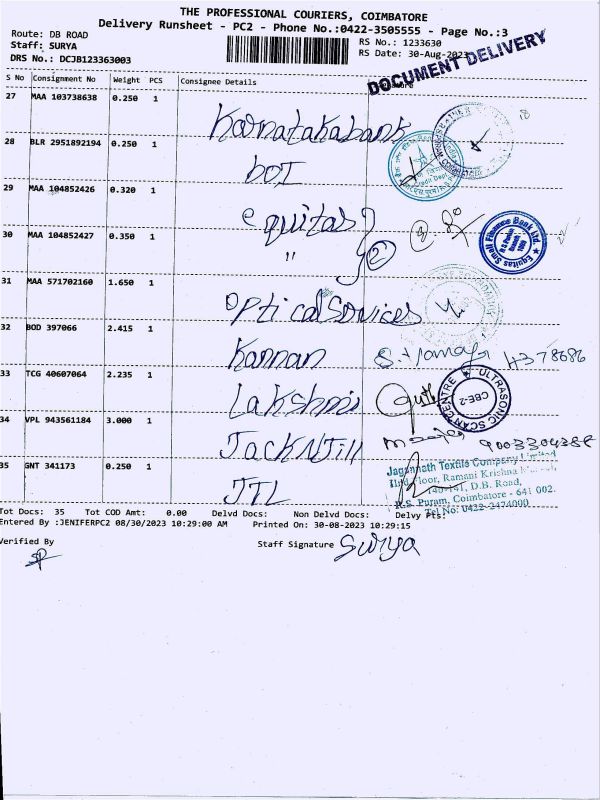 THE PROFESSIONAL COURIERS, COIMBATORE
Delivery Runsheet - PC2 - Phone No.:0422-3505555 - Page No.:3
Route: DB ROAD
Staff: SURYA
DRS No.: DCJB123363003
RS No.: 1233630
RS Date: 30-Aug-2023
DOCUMENT DELIVERY
S No Consignment No Weight PCS Consignee Details
27 MAA 103738638 0.250 1 Karnatakabank
28 BLR 2951892194 0.250 1 bOI
29 MAA 104852426 0.320 1 equitas
30 MAA 104852427 0.350 1 " 2
Equitas Small Finance Bank Ltd.
31 MAA 571702160 1.650 1 Optical Services
32 BOD 397066 2.415 1 Kannan
33 TCG 40607064 2.235 1 Lakshmi
ULTRASONIC SCAN CENTRE
CBE-2
34 VPL 943561184 3.000 1 JackNJill
35 GNT 341173 0.250 1 JTL
Jagannath Textile Company Limited
Floor, Ramani Krishna
140-141, D.B. Road,
R.S. Puram, Coimbatore - 641 002.
Tel No: 0422-2474000
Tot Docs: 35 Tot COD Amt: 0.00 Delvd Docs: Non Delvd Docs: Delvy Pts:
Entered By :JENIFERPC2 08/30/2023 10:29:00 AM Printed On: 30-08-2023 10:29:15
Verified By
Staff Signature Surya